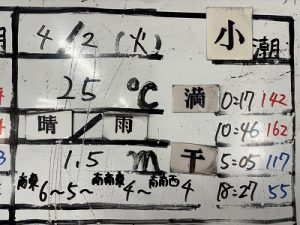 4/2(火) 小潮
25 ℃ 満 0:17 142
晴/雨 10:46 162
1.5 m 干 5:05 117
南東6~5~南南東4~南南西4 18:27 55